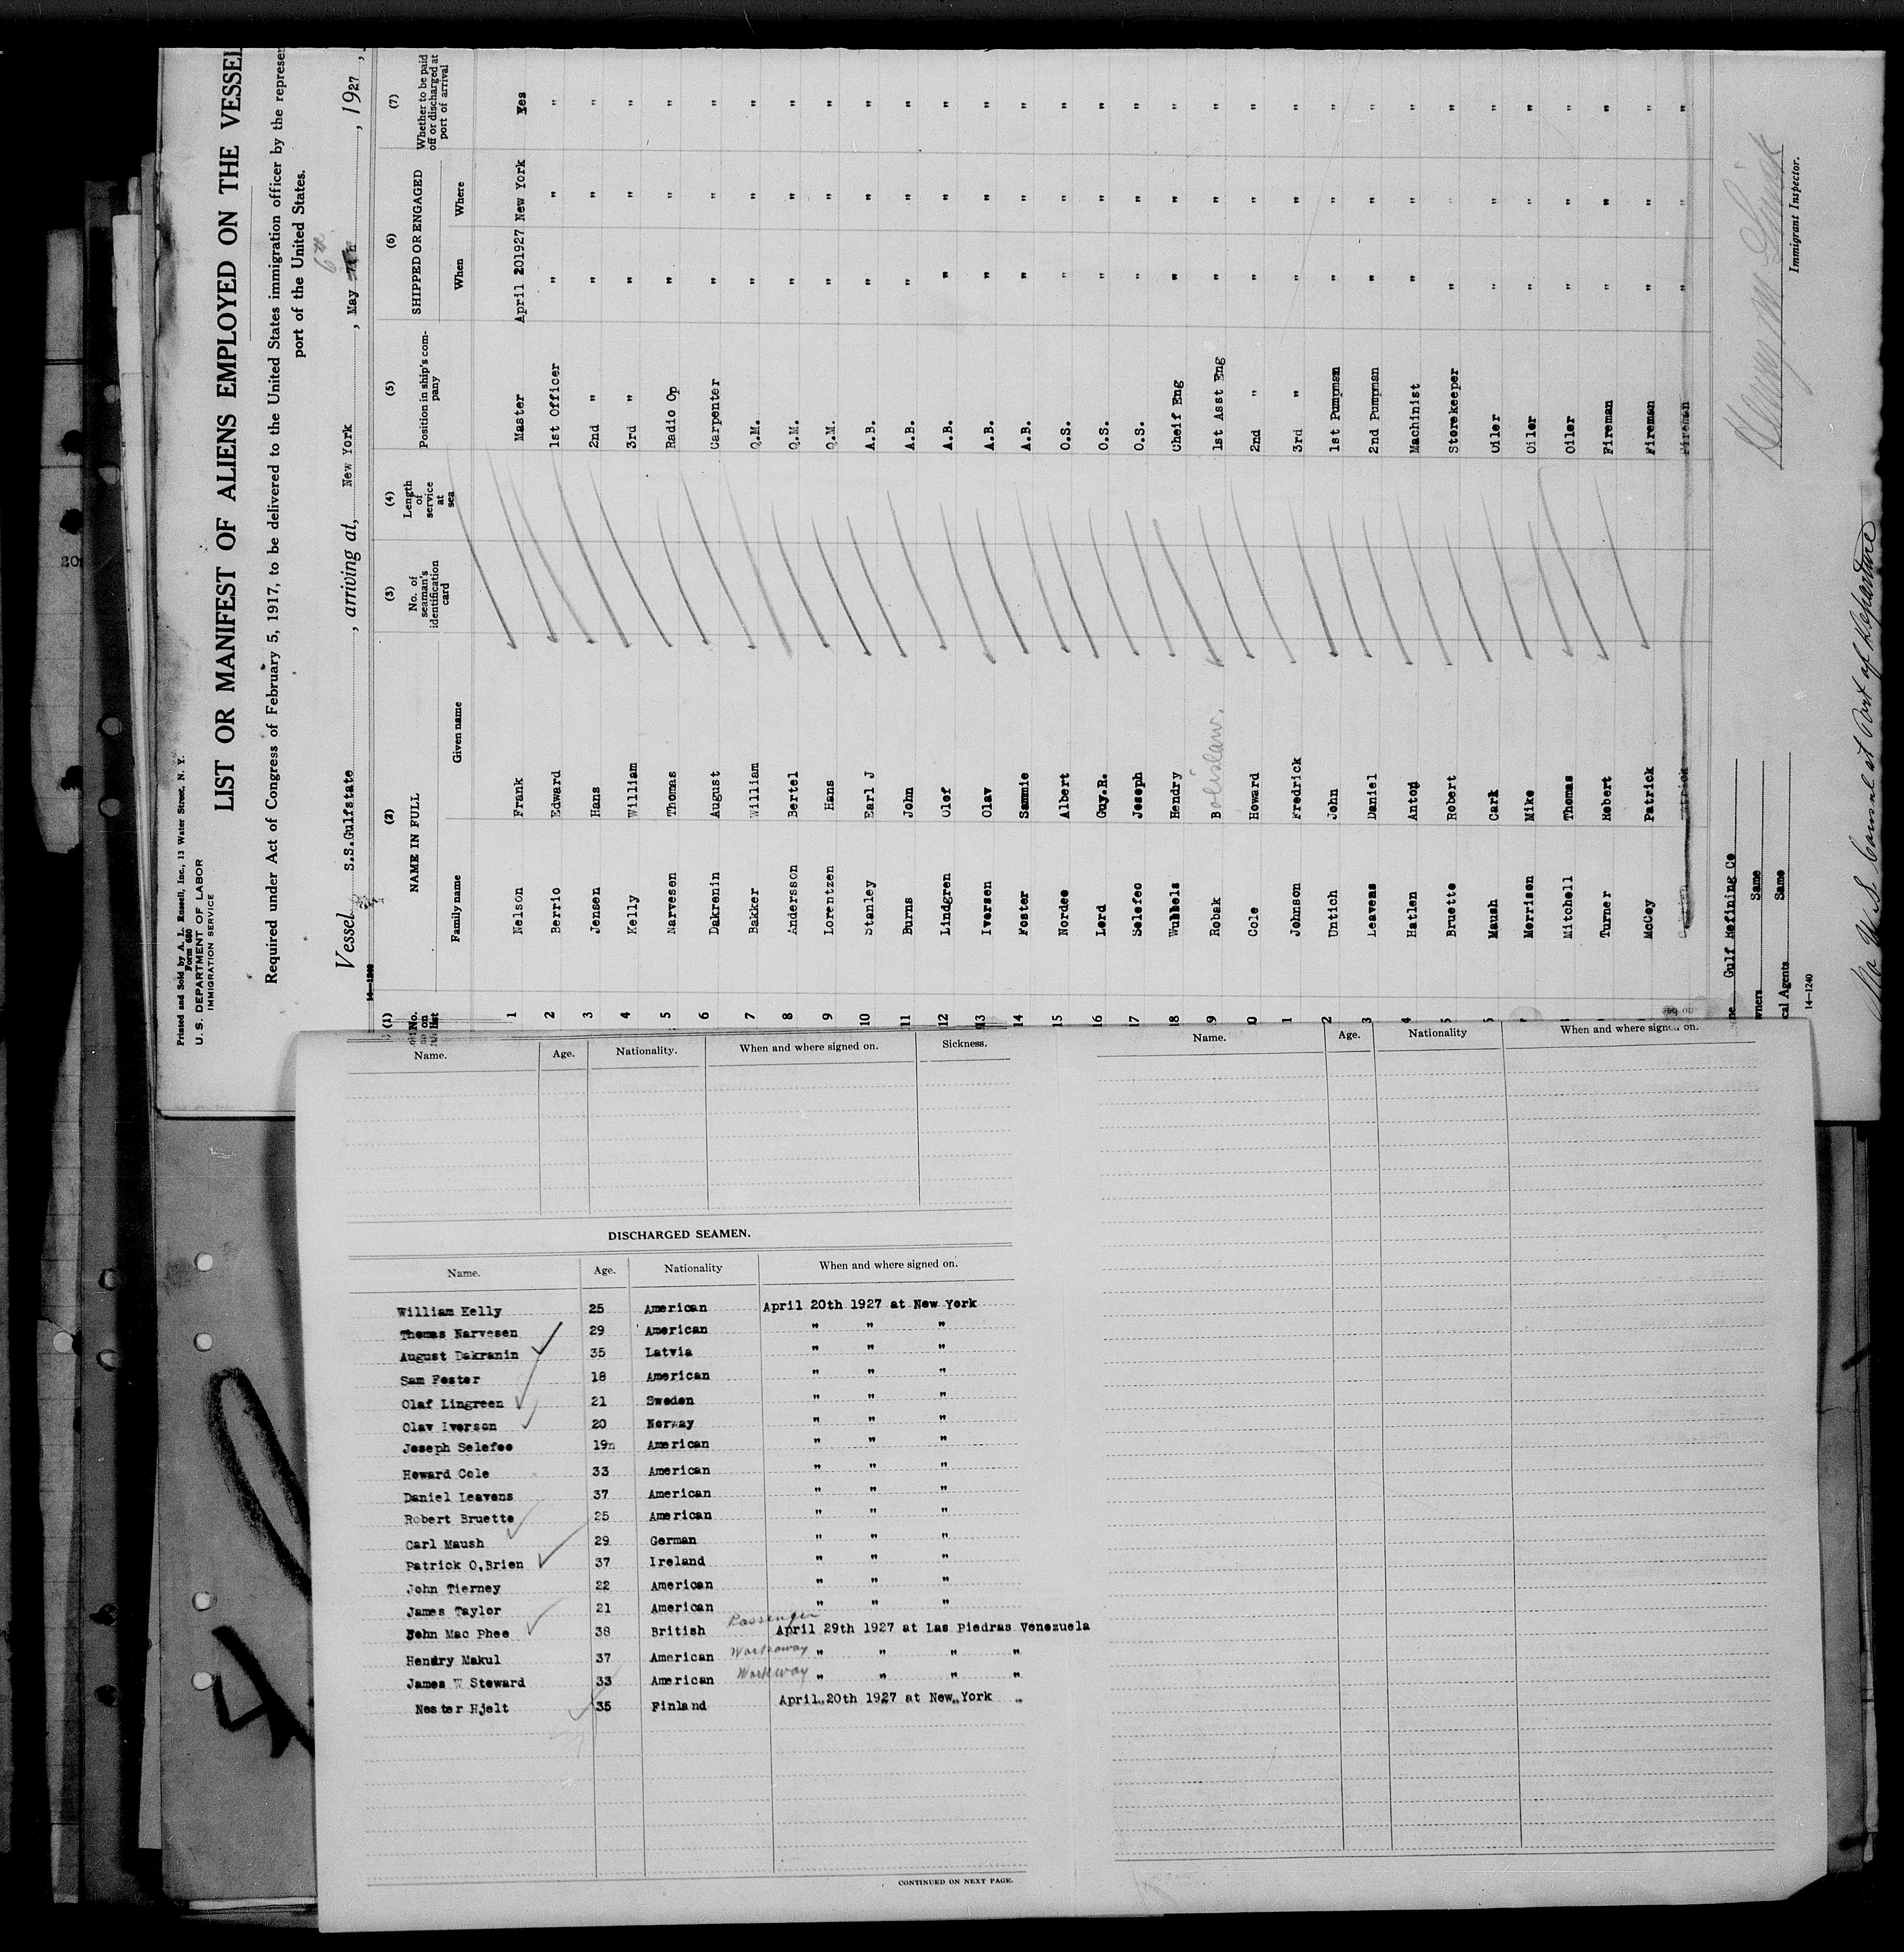 Printed and Sold by A. L. Russell, Inc., 13 Water Street, N. Y.
Form 680
U. S. DEPARTMENT OF LABOR
IMMIGRATION SERVICE
LIST OR MANIFEST OF ALIENS EMPLOYED ON THE VESSEL
Required under Act of Congress of February 5, 1917, to be delivered to the United States immigration officer by the represen
port of the United States.
6th
Vessel S.S.Gulfstate, arriving at, New York, May, 1927,
14—1240
(1) (2) (3) (4) (5) (6) (7)
No. on list NAME IN FULL No. of seaman's identification card Length of service at sea Position in ship's company SHIPPED OR ENGAGED Whether to be paid off or discharged at port of arrival
Family name Given name When Where
1 Nelson Frank Master April 201927 New York Yes
2 Berrio Edward 1st Officer " " "
3 Jensen Hans 2nd " " " "
4 Kelly William 3rd " " " "
5 Narvesen Thomas Radio Op " " "
6 Dakrenin August Carpenter " " "
7 Bakker William Q.M. " " "
8 Andersson Bertel Q.M. " " "
9 Lorentzen Hans Q.M. " " "
10 Stanley Earl J A.B. " " "
11 Burns John A.B. " " "
12 Lindgren Olof A.B. " " "
13 Iversen Olav A.B. " " "
14 Foster Sammie A.B. " " "
15 Nordee Albert O.S. " " "
16 Lord Guy.R. O.S. " " "
17 Selefeo Joseph O.S. " " "
18 Wubbels Hendry Cheif Eng " " "
9 Robak Bolislaw. 1st Asst Eng " " "
0 Cole Howard 2nd " " " "
1 Johnson Fredrick 3rd " " " "
2 Untich John 1st Pumpman " " "
3 Leavens Daniel 2nd Pumpman " " "
4 Hatlen Anton Machinist " " "
5 Bruette Robert Storekeeper " " "
Maush Cark Oiler " " "
Morrison Mike Oiler " " "
Mitchell Thomas Oiler " " "
Turner Robert Fireman " " "
McCoy Patrick Fireman " " "
Fireman " " "
ne Gulf Refining Co
wners Same
cal Agents Same
14—1240
Immigrant Inspector.
No U.S. Consul at Port of departure
Name. Age. Nationality. When and where signed on. Sickness.
DISCHARGED SEAMEN.
Name. Age. Nationality When and where signed on.
William Kelly 25 American April 20th 1927 at New York
Thomas Narvesen 29 American " " "
August Dakranin 35 Latvia " " "
Sam Foster 18 American " " "
Olaf Lingreen 21 Sweden " " "
Olav Iverson 20 Norway " " "
Joseph Selefeo 19n American " " "
Howard Cole 33 American " " "
Daniel Leavens 37 American " " "
Robert Bruette 25 American " " "
Carl Maush 29 German " " "
Patrick O,Brien 37 Ireland " " "
John Tierney 22 American " " "
James Taylor 21 American " " "
John Mac Phee 38 British Passenger April 29th 1927 at Las Piedras Venezuela
Hendry Makul 37 American Workaway " " " "
James W Steward 33 American Workway " " " "
Nester Hjelt 35 Finland April 20th 1927 at New York "
CONTINUED ON NEXT PAGE.
Name. Age. Nationality When and where signed on.